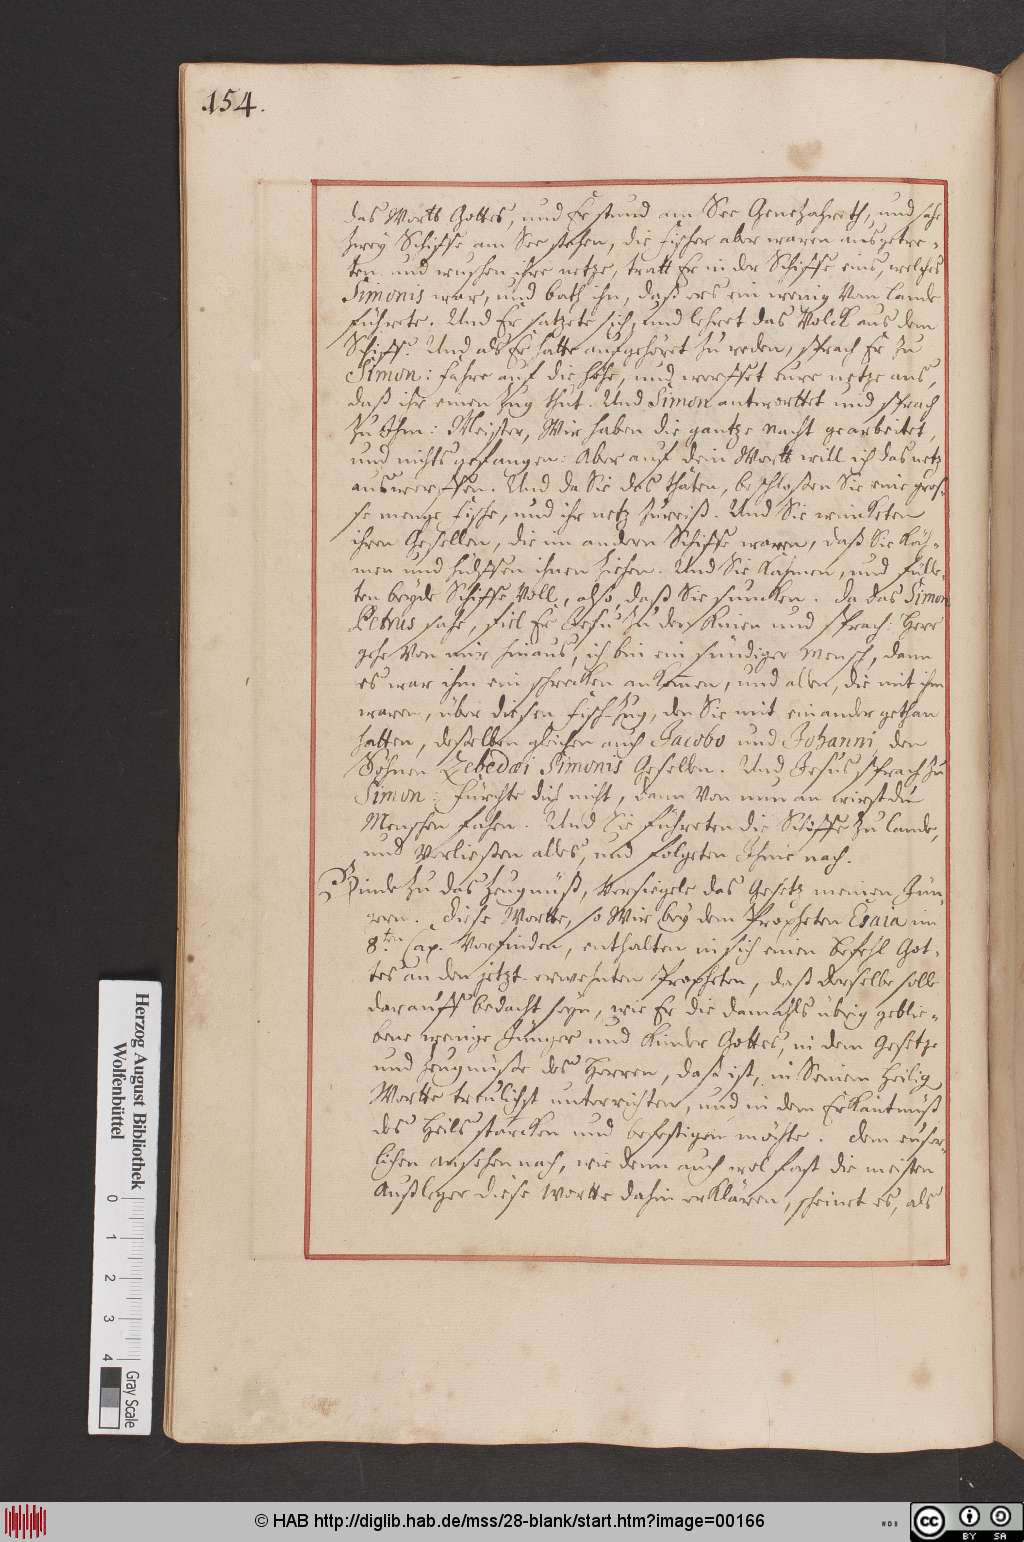 154.
das Worts Gottes, und Er stund am See Genezahreth, und sahe
zwey Schiffe am See stehen, die Fischer aber waren ausgetre-
ten und wuschen ihre netze, tratt Er in der Schiffe eins, welches
Simonis war, und bath ihn, daß ers ein wenig Vom Lande
führete. Und Er satzete sich, und lehret das Volck aus dem
Schiff. Und als Er hatte aufgehöret zu reden, sprach Er zu
Simon: fahre auf die höhe, und werffet eure netze aus,
daß ihr einen Zug thut. Und Simon antworttet und sprach
Zu Ihm: Meister, Wir haben die gantze Nacht gearbeitet,
und nichts gefangen: Aber auf dein Wortt will ich das netz
auswerffen. Und da Sie das thäten, beschloßen Sie eine gros-
se menge Fische, und ihr netz zureiß. Und Sie wincketen
ihren Gesellen, die im andern Schiffe waren, daß Sie käh-
men und hülffen ihnen ziehen. Und Sie kahmen, und fülle-
ten beyde Schiffe Voll, also, daß Sie suncken. Da das Simon
Petrus sahe, fiel Er Jesu zu den Knien und sprach: Herr
gehe Von mir hinaus, ich bin ein sündiger Mensch, dann
es war ihm ein schrecken ankommen, und allen, die mit ihm
waren, über diesen Fisch-Zug, den Sie mit einander gethan
hatten, desselben gleichen auch Jacobo und Johanni, den
Söhnen Zebedæi Simonis Gesellen. Und Jesus sprach zu
Simon: Fürchte dich nicht, dann Von nun an wirst du
Menschen fahen. Und Sie führeten die Schiffe zu Lande,
und Verließen alles, und folgeten Ihme nach.
Binde zu das Zeugnüß, Versiegele das Gesetz meinen Jün-
gern. Diese Wortte, so Wir bey dem Propheten Esaia im
8.ten Cap. Vorfinden, enthalten in sich einen Befehl Got-
tes an den jetzt-erwehnten Propheten, daß derselbe solle
darauff bedacht seyn, wie Er die damahls übrig geblie-
bene wenige Jünger und Kinder Gottes, in dem Gesetze
und Zeugnüße des Herren, daß ist, in Seinem Heilig
Wortte treulichst unterrichten, und in dem Erkäntnüß
des Heils stärcken und befestigen möchte. Dem euser-
lichen ansehen nach, wie denn auch wol fast die meisten
Außleger diese Wortte dahin erklären, scheinet es, als
Herzog August Bibliothek
Wolfenbüttel
0 1 2 3 4
Gray Scale
© HAB http://diglib.hab.de/mss/28-blank/start.htm?image=00166
WDB
CC BY SA